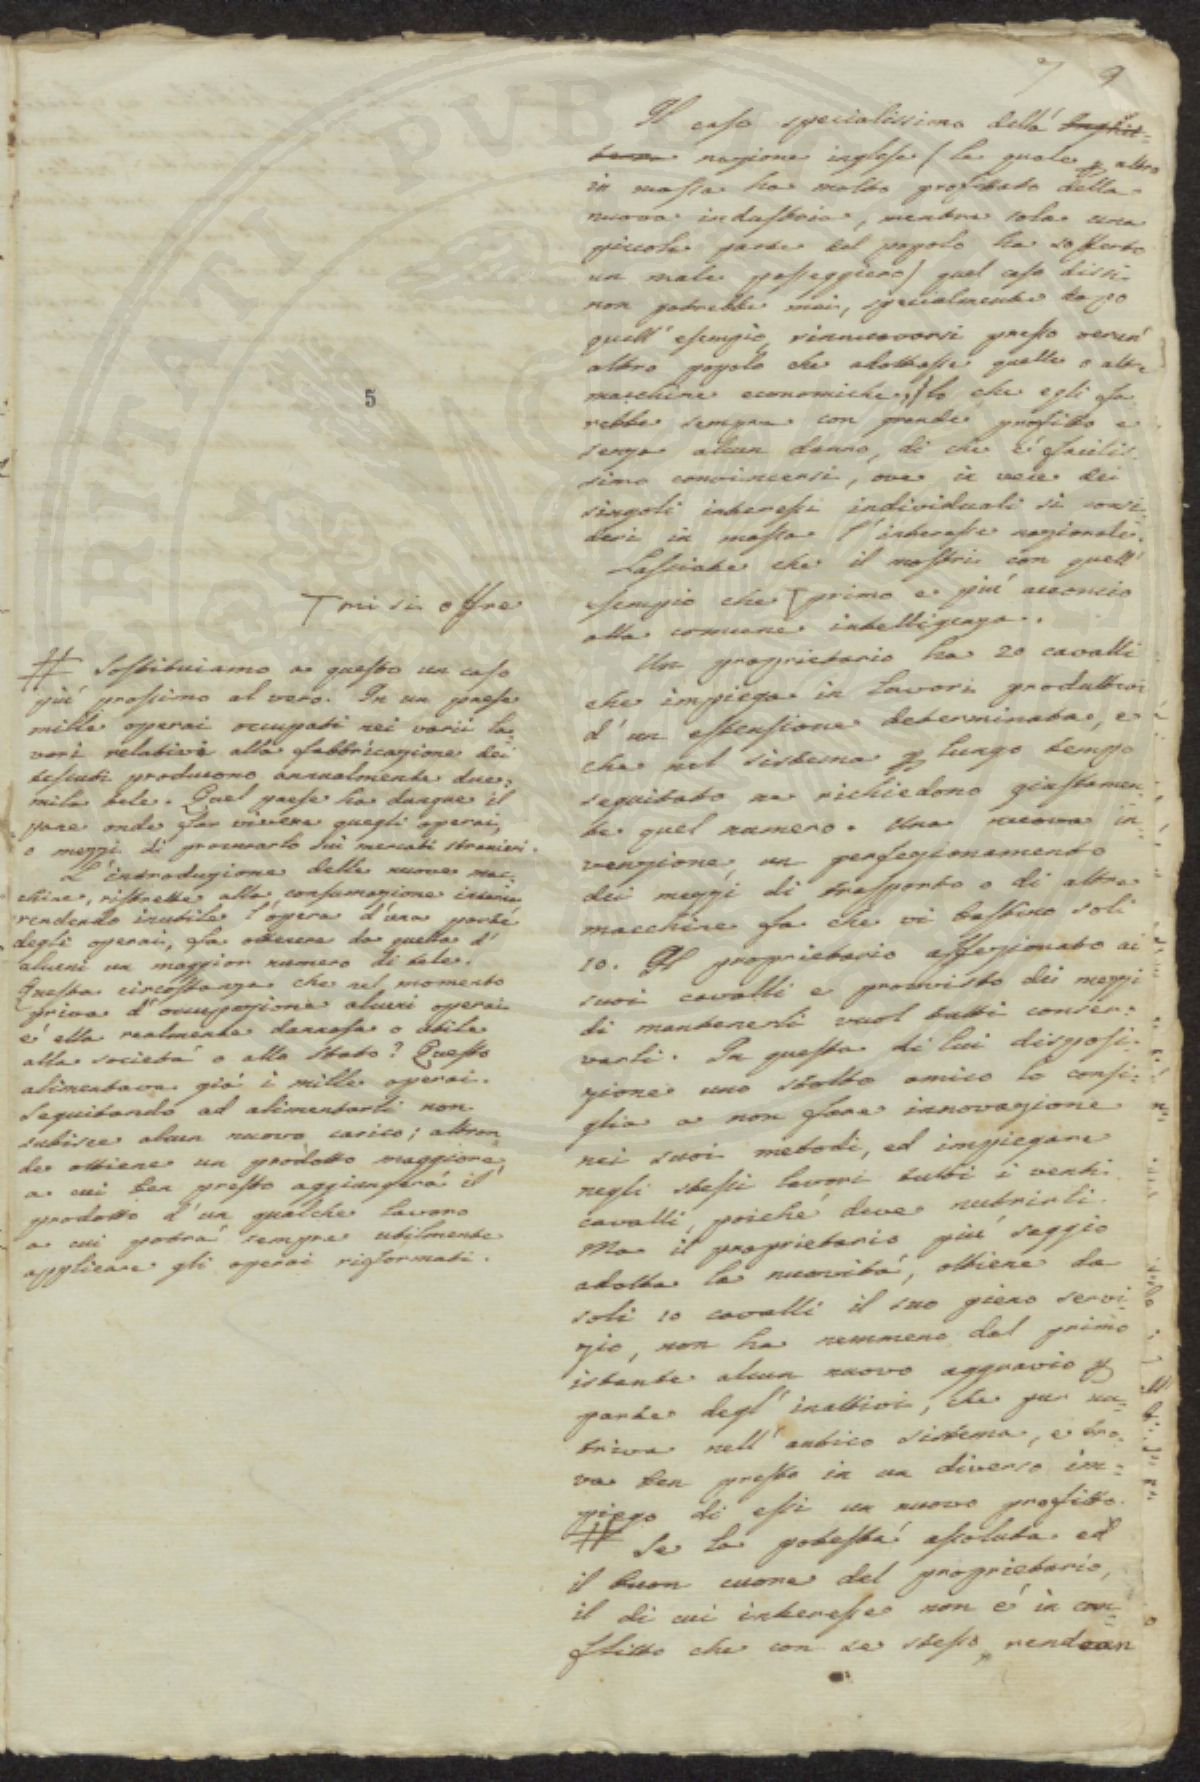 7 9
Il caso specialissimo della Inghil=
terra nazione inglese (la quale p altro
in massa ha molto profittato della
nuova industria, mentre sola una
piccola parte del popolo ha sofferto
un male passeggiero) quel caso dissi
non potrebbe mai, specialmente dopo
quell' esempio, rinnovarsi presso verun'
altro popolo che adottasse quelle o altre
macchine economiche, lo che egli fa
rebbe sempre con grande profitto e
senza alcun danno, di che è facilis
simo convincersi, ove in vece dei
singoli interessi individuali si consi
deri in massa l' interesse nazionale.
Lasciate che il mostri con quell'
esempio che T primo e più acconcio
alla comune intelligenza.
Un proprietario ha 20 cavalli
che impiega in lavori produttivi
d' un estensione determinata, e
che nel sistema p lungo tempo
seguitato ne richiedono giustamen
te quel numero. Una nuova in
venzione, un perfezionamento
dei mezzi di trasporto o di altre
macchine fa che vi bastino soli
10. Il proprietario affezionato ai
suoi cavalli e provvisto dei mezzi
di mantenerli vuol tutti conser=
varli. In questa di lui disposi=
zione uno stolto amico lo consi=
glia a non fare innovazione
nei suoi metodi, ed impiegare
negli stessi lavori tutti i venti
cavalli, poiché deve nutrirli.
Ma il proprietario più saggio
adotta la nuovità, ottiene da
soli 10 cavalli il suo pieno servi
zio, non ha nemmeno dal primo
istante alcun nuovo aggravio p
parte degl' inattivi, che pur nu=
triva nell' antico sistema, e tro=
va ben presto in un diverso im=
piego di essi un nuovo profitto.
# Se la potestà assoluta ed
il buon cuore del proprietario,
il di cui interesse non è in con
flitto che con se stesso, rendean
5
T mi si offre
# Sostituiamo a questo un caso
più prossimo al vero. In un paese
mille operai occupati nei varii la=
vori relativi alla fabbricazione dei
tessuti producono annualmente due=
mila tele. Quel paese ha dunque il
pane onde far vivere quegli operai,
o mezzi di procurarlo sui mercati stranieri.
L' introduzione delle nuove mac=
chine, ristretta alla consumazione interna
rendendo inutile l' opera d' una parte
degli operai, fa ottenere da quella d'
alcuni un maggior numero di tele.
Questa circostanza che nel momento
priva d' occupazione alcuni operai
è ella realmente dannosa o utile
alla società o allo Stato? Questo
alimentava già i mille operai.
Seguitando ad alimentarli non
subisce alcun nuovo carico; altron
de ottiene un prodotto maggiore,
a cui ben presto aggiungerà il
prodotto d' un qualche lavoro
a cui potrà sempre utilmente
applicare gli operai riformati.